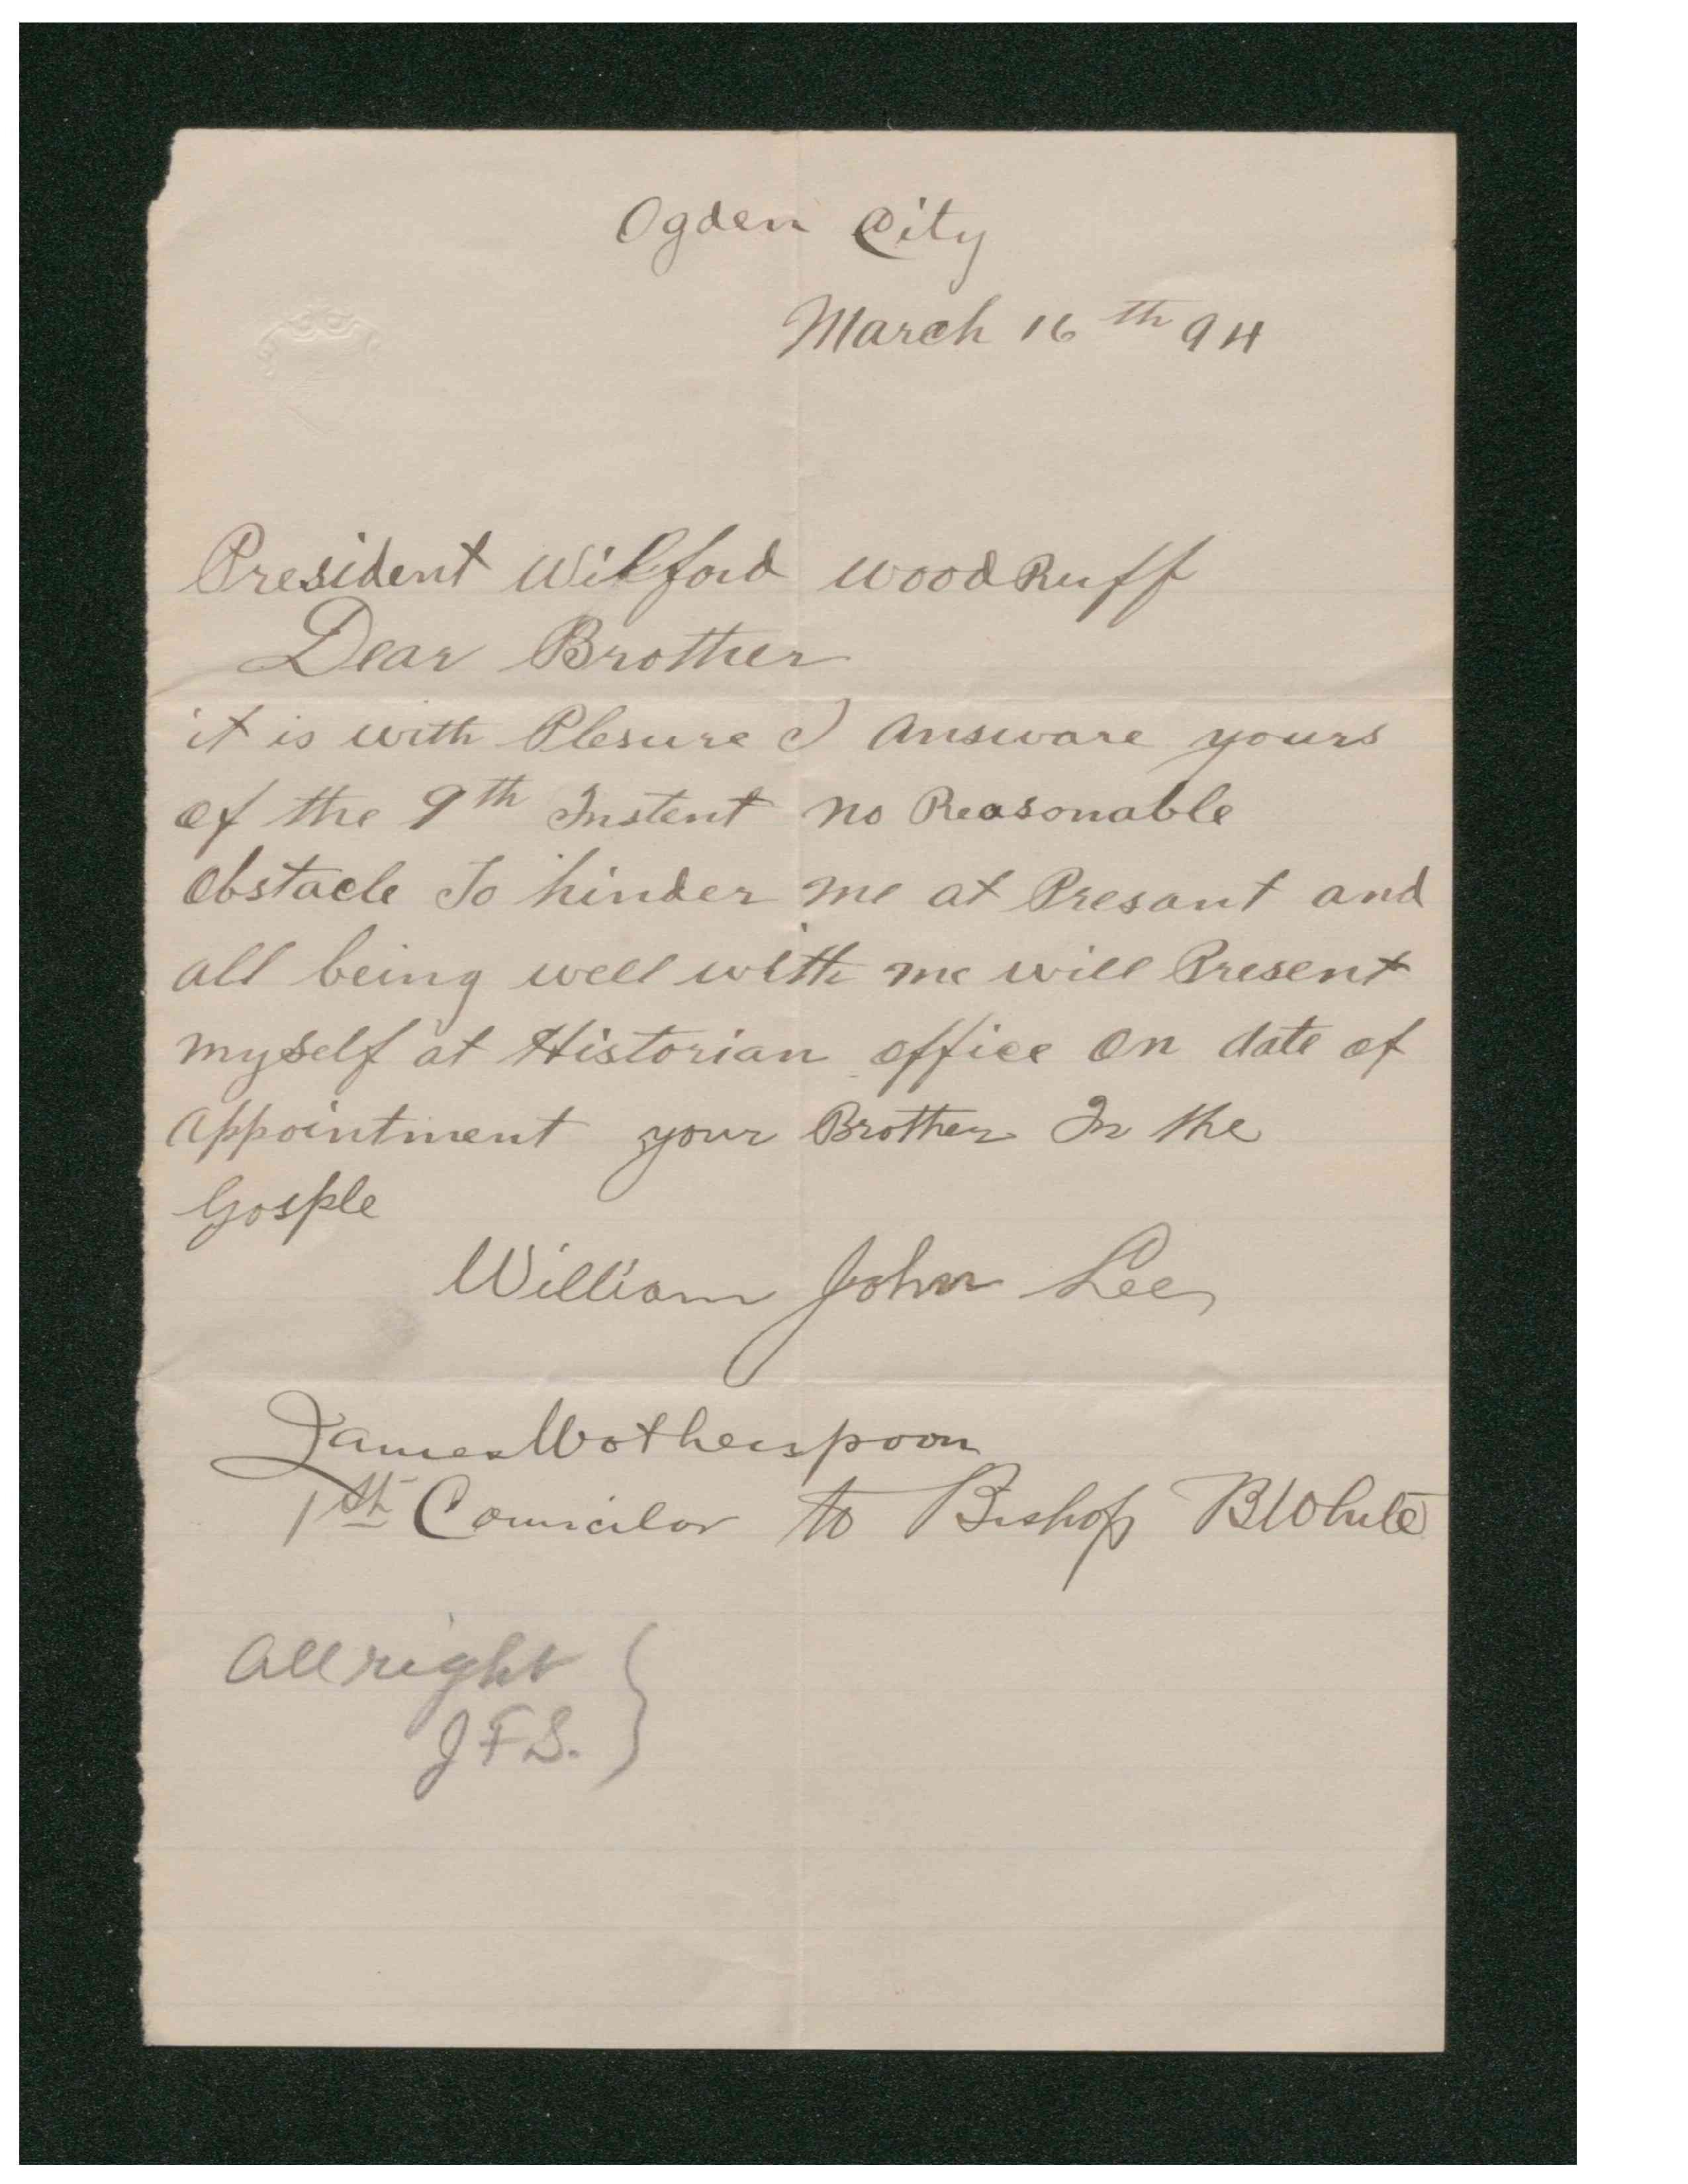 Ogden City
March 16th 94
President Wilford WoodRuff
Dear Brother
it is with Plesure I answare yours
of the 9th Instent no Reasonable
obstacle To hinder me at Presant and
all being well with me will Present
myself at Historian office on date of
appointment your Brother In the
Gosple
William John Lee
James Wotherspoon
1st Councilor to Bishop B White
All right
J F S.